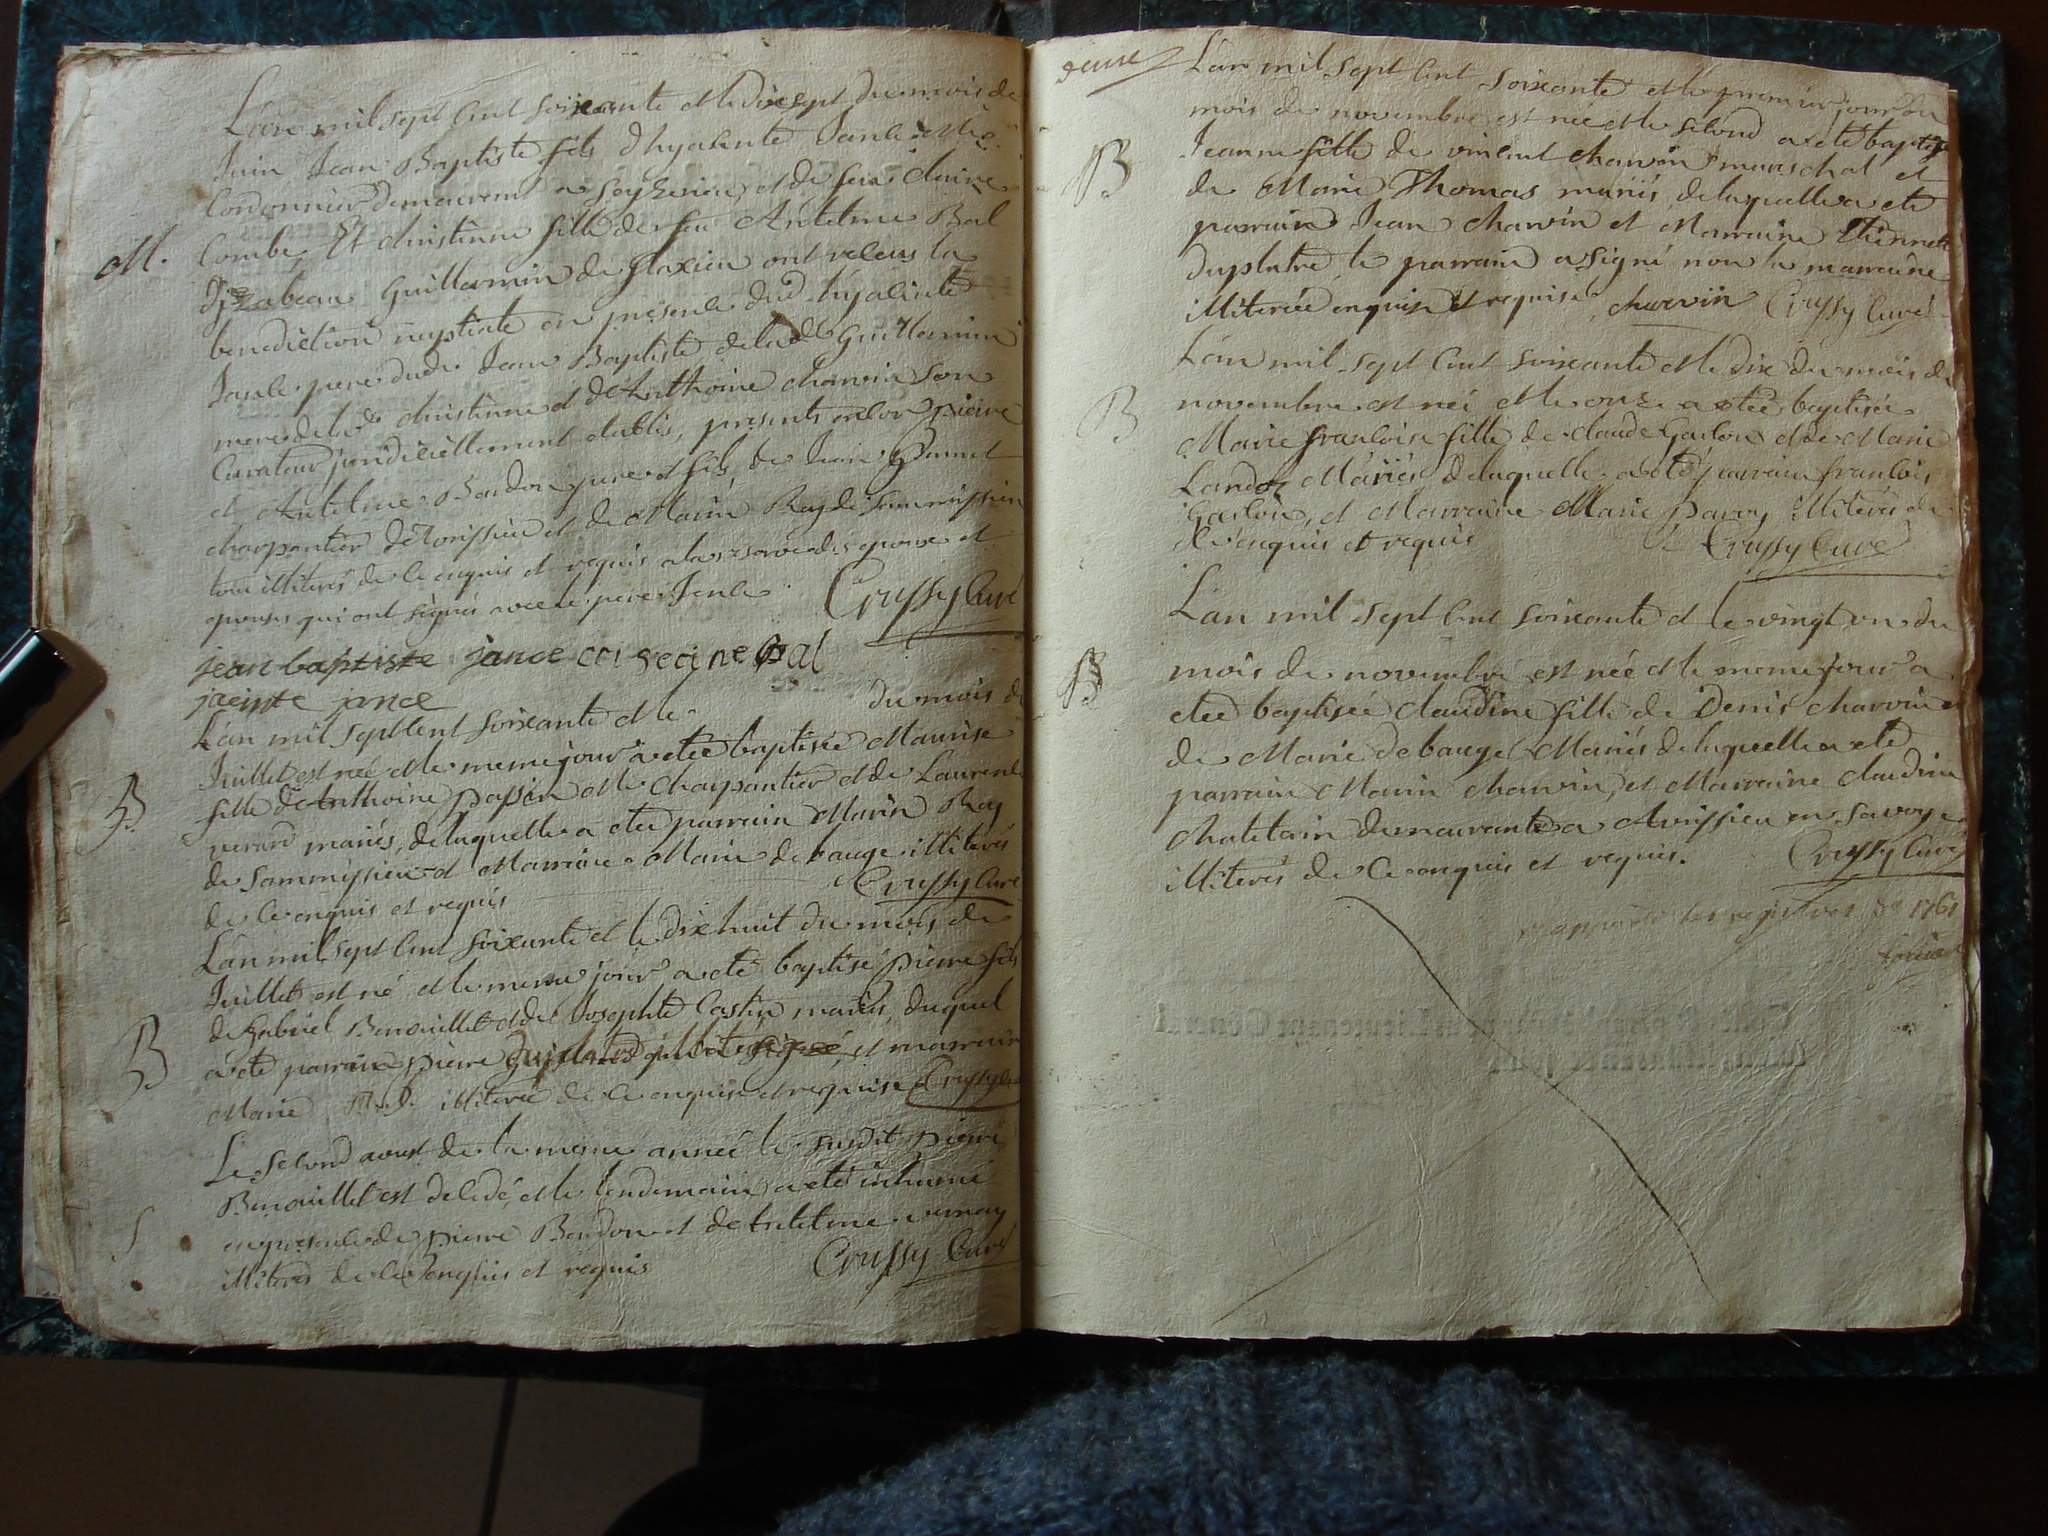 L'an mil sept cent soixante et le dix sept du mois de
Juin Jean Baptiste fils d'hyacinte Jance Me
Cordonnier demeurant a et de feüe claire
Combe, Et christinne fille de feu Antelme Bal
Guillermin de flaxieu ont receus la
benediction nuptiale en presence dud hyacinte
Jance pere dud. Jean Baptiste de lade Guillermin
mere de lade christinne et de Anthoine charvin son
Curateur juridiciellement etablis, presents encor pierre
et Antelme Bandon pere et fils, de Jean
charpantier de et de Marin Rey de
tous illiterés de ce enquis et requis a la reserve des epoux et
epouses qui ont signés avec le pere Jance Crussy Curé
jean baptiste jance cri seci ne bal
jacinte jance
L'an mil sept cent soixante et le du mois de
Juillet est née et le meme jour a etée baptisée Maurise
fille de Anthoine passin Me Charpantier et de Laurence
verard mariés, de laquelle a eté parrain Marin Rey
de et Marraine Marie debauge illiterés
de ce enquis et requis Crussy Curé
L'an mil sept cent soixante et le dix huit du mois de
Juillet est né et le meme jour a eté baptisé pierre fils
de Gabriel Benouillet et de Josephte Castin mariés, duquel
a eté parrain pierre et marraine
Marie illiterée de ce enquise et requise Crussy Curé
Le second aoust de la meme année le susdit pierre
Benouillet est decedé, et le lendemain a eté inhumé
en presence de pierre Bandon et de Antelme vernay
illiterés de ce enquis et requis Crussy Curé
L'an mil sept cent soixante et le premier jour du
mois de novembre est née et le second a eté baptisée
Jeanne fille de vincent charvin mareschal et
de Marie Thomas mariés de laquelle a eté
parrain Jean charvin et Marraine Etiennette
Duplatre le parrain a signé non la marraine
illiterée enquise et requise charvin Crussy Curé
L'an mil sept cent soixante et le dix du mois de
novembre est née et le onze a etée baptisée
Marie francoise fille de claude Gaslon et de Marie
Landoz Mariés de laquelle a eté parrain francois
Gaslon, et Marraine Marie pavy illiterés de
ce enquis et requis Crussy Curé
L'an mil sept cent soixante et le vingt un du
mois de novembre est née et le meme jour a
etée baptisée claudine fille de Denis charvin et
de Marie debauge Mariés de laquelle a eté
parrain Marin charvin, et Marraine claudine
chatelain demeurante a en Savoye
illiterés de ce enquis et requis. Crussy Curé
les registres de 1761